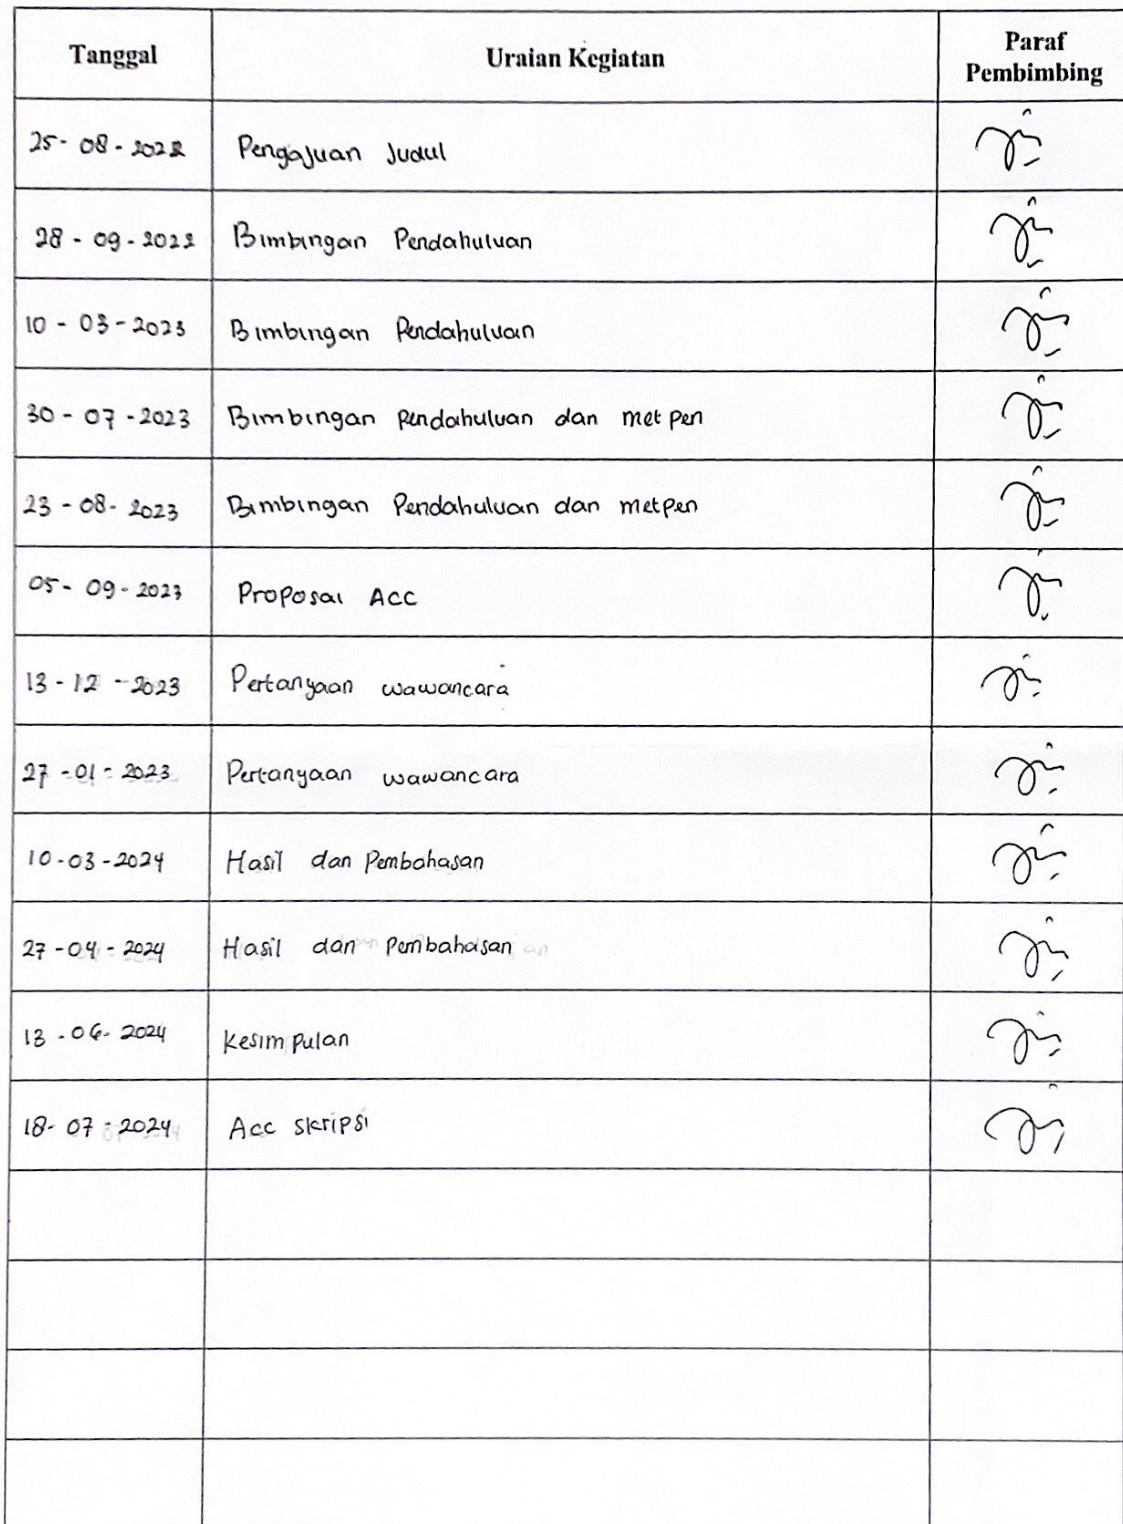 Tanggal Uraian Kegiatan Paraf Pembimbing
25-08-2022 Pengajuan Judul
28-09-2022 Bimbingan Pendahuluan
10-03-2023 Bimbingan Pendahuluan
30-07-2023 Bimbingan Pendahuluan dan metpen
23-08-2023 Bimbingan Pendahuluan dan metpen
05-09-2023 Proposal Acc
13-12-2023 Pertanyaan wawancara
27-01-2023 Pertanyaan wawancara
10-03-2024 Hasil dan Pembahasan
27-04-2024 Hasil dan Pembahasan
13-06-2024 Kesimpulan
18-07-2024 Acc skripsi